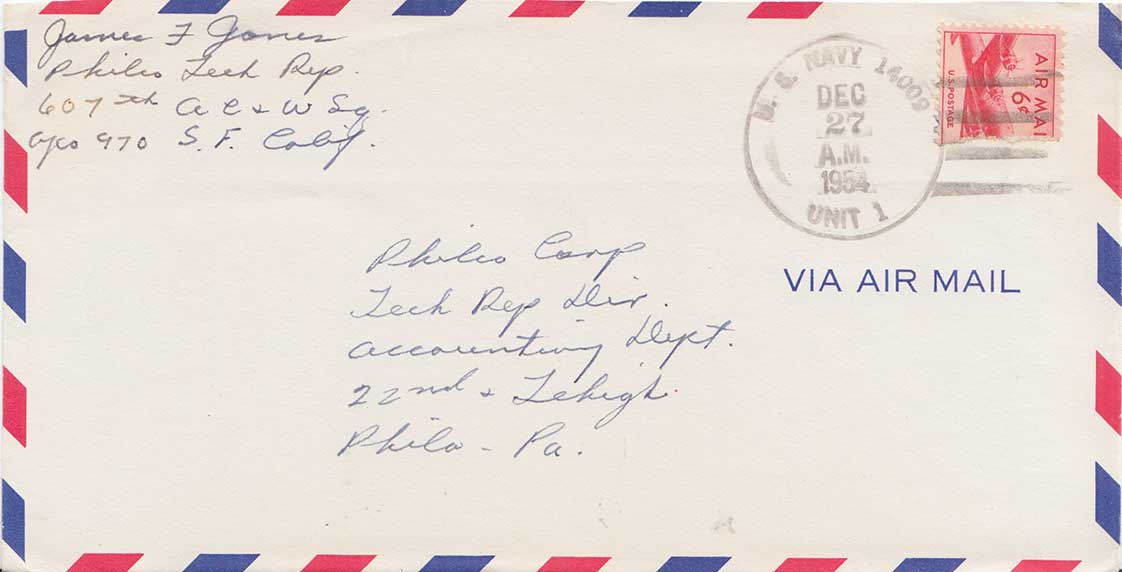 James F Jones
Philco Tech Rep.
607th AC & W Sq.
APO 970 S. F. Calif.
U. S. NAVY 14009
DEC
27
A.M.
1954
UNIT 1
AIR MAI
6¢
U.S. POSTAGE
VIA AIR MAIL
Philco Corp
Tech Rep Div.
Accounting Dept.
22nd & Lehigh
Phila - Pa.